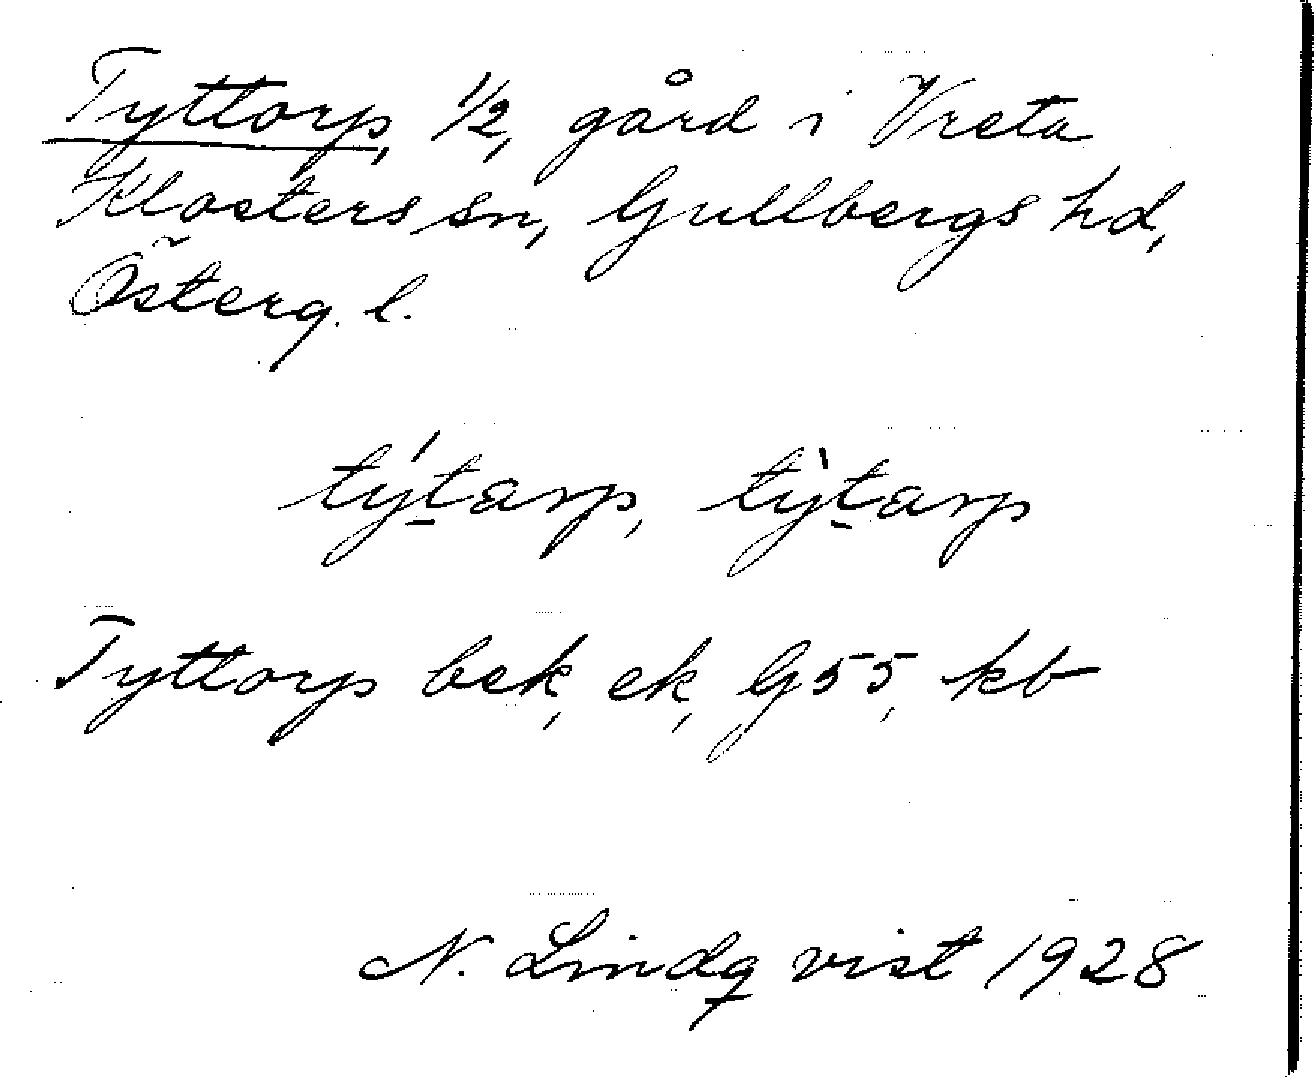 Tyttorp, 1/2, gård i Vreta
Klosters sn, Gullbergs hd,
Österg. l.
týt̲arp, tỳt̲arp
Tyttorp bek, ek, G55, kb
N. Lindqvist 1928